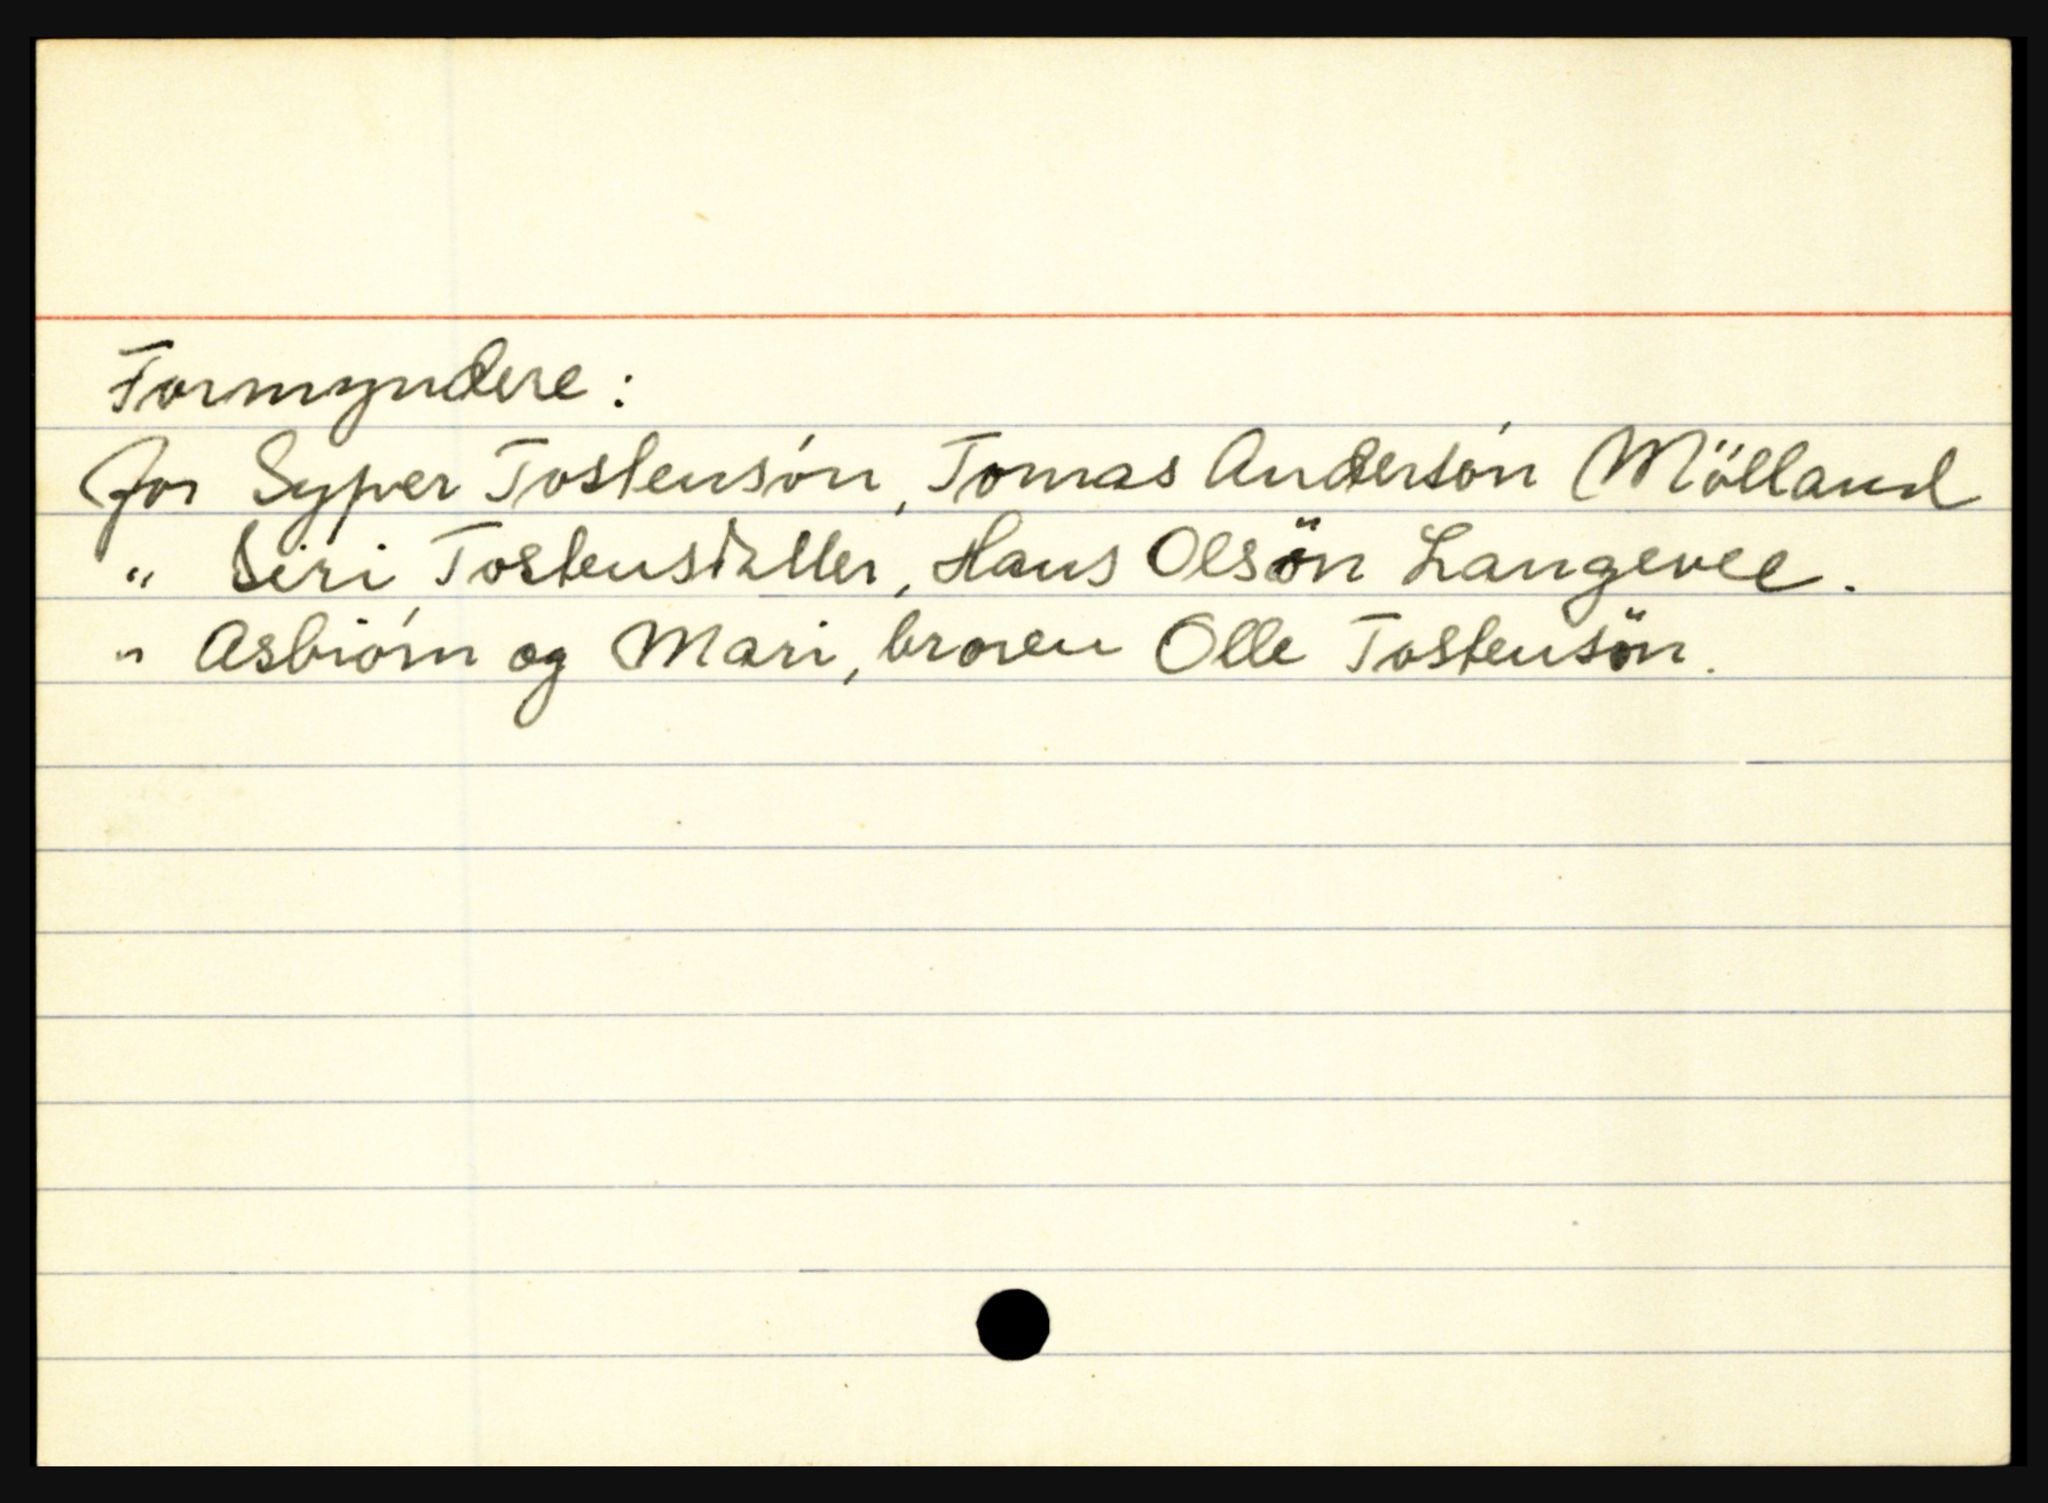 Formyndere:
for Syver Tostensón, Tomas Andersón Mölland
" Siri Tostensdatter, Hans Olsön Langevee.
" Asbiórn og Mari, broren Olle Tostensön.